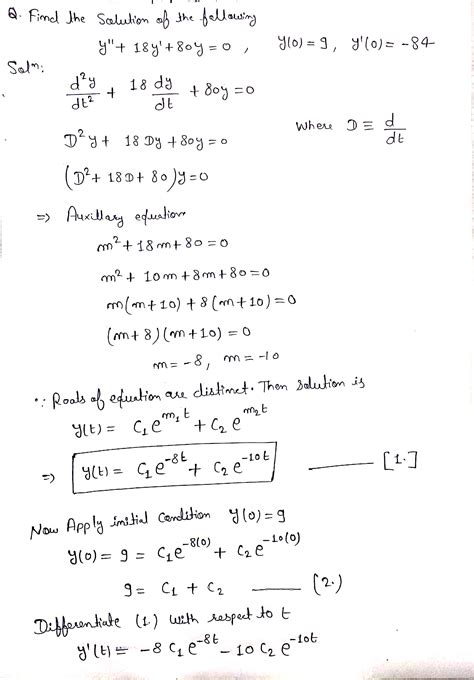 Q. Find the Solution of the following
y'' + 18y' + 80y = 0 , y(0) = 9 , y'(0) = -84
Solⁿ:
d²y/dt² + 18 dy/dt + 80y = 0
D²y + 18 Dy + 80y = 0 where D ≡ d/dt
(D² + 18D + 80)y = 0
⇒ Auxillary equation
m² + 18m + 80 = 0
m² + 10m + 8m + 80 = 0
m(m+10) + 8(m+10) = 0
(m+8)(m+10) = 0
m = -8, m = -10
∵ Roots of equation are distinct. Then solution is
y(t) = C₁e^{m₁t} + C₂e^{m₂t}
⇒ y(t) = C₁e^{-8t} + C₂e^{-10t} —— [1.]
Now Apply initial Condition y(0) = 9
y(0) = 9 = C₁e^{-8(0)} + C₂e^{-10(0)}
9 = C₁ + C₂ —— (2.)
Differentiate (1.) with respect to t
y'(t) = -8C₁e^{-8t} - 10C₂e^{-10t}